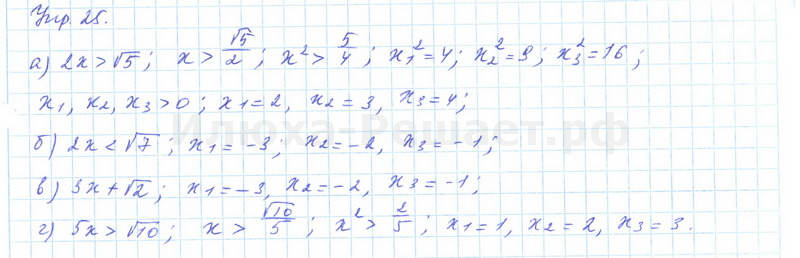 Упр. 25.
а) 2x > √5; x > √5/2; x² > 5/4; x₁² = 4; x₂² = 9; x₃² = 16;
x₁, x₂, x₃ > 0; x₁ = 2, x₂ = 3, x₃ = 4;
Илюха-Решает.рф
б) 2x < √7; x₁ = -3; x₂ = -2, x₃ = -1;
в) 3x + √2; x₁ = -3, x₂ = -2, x₃ = -1;
г) 5x > √10; x > √10/5; x² > 2/5; x₁ = 1, x₂ = 2, x₃ = 3.